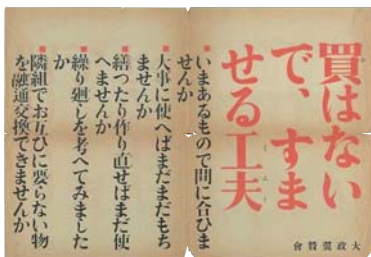 買はない
で、すま
せる工夫
くふう
いまあるもので間に合ひま
せんか
大事に使へばまだまだもち
ませんか
繕つたり作り直せばまだ使
へませんか
繰り廻しを考へてみました
か
隣組でお互ひに要らない物
を融通交換できませんか
大政翼賛會